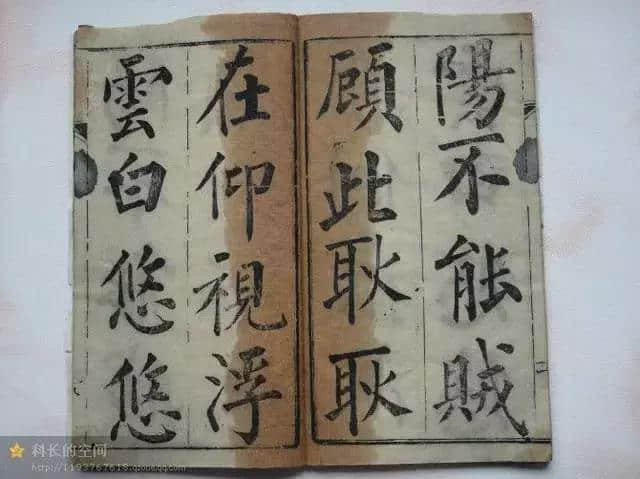 陽不能賊
顧此耿耿
在仰視浮
雲白悠悠
科长的空间
http://1193767618.qzone.qq.com